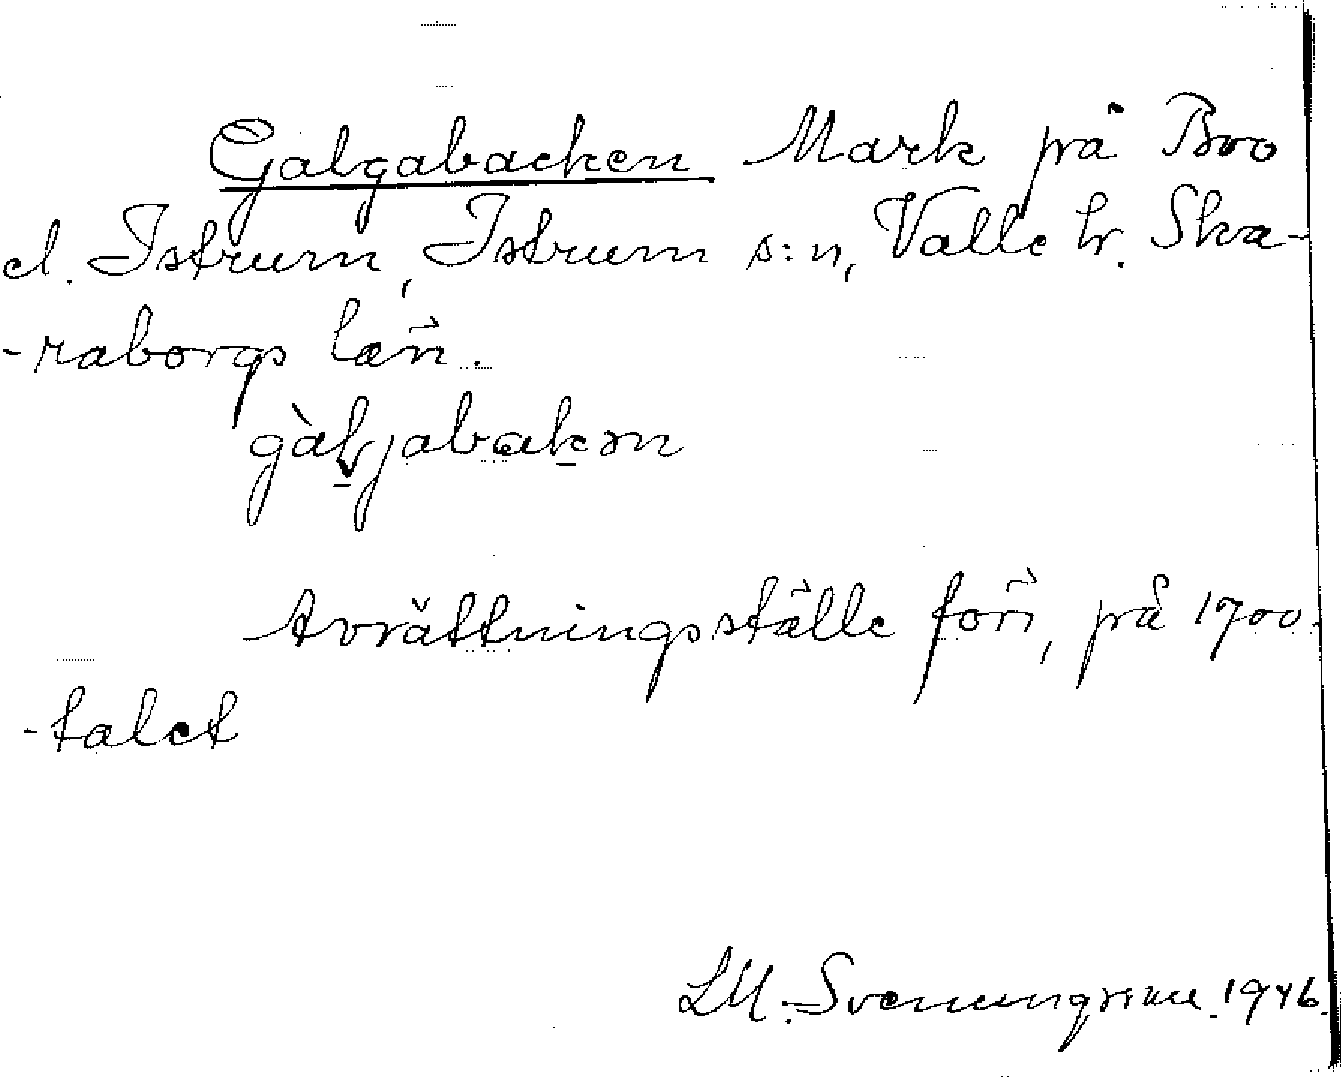 Galgabacken Mark på Bro
el. Istrum, Istrum s:n, Valle hr. Ska-
-raborgs län.
gàljabakən
Avrättningsställe förr, på 1700
-talet
LM. Svenungsson. 1946.